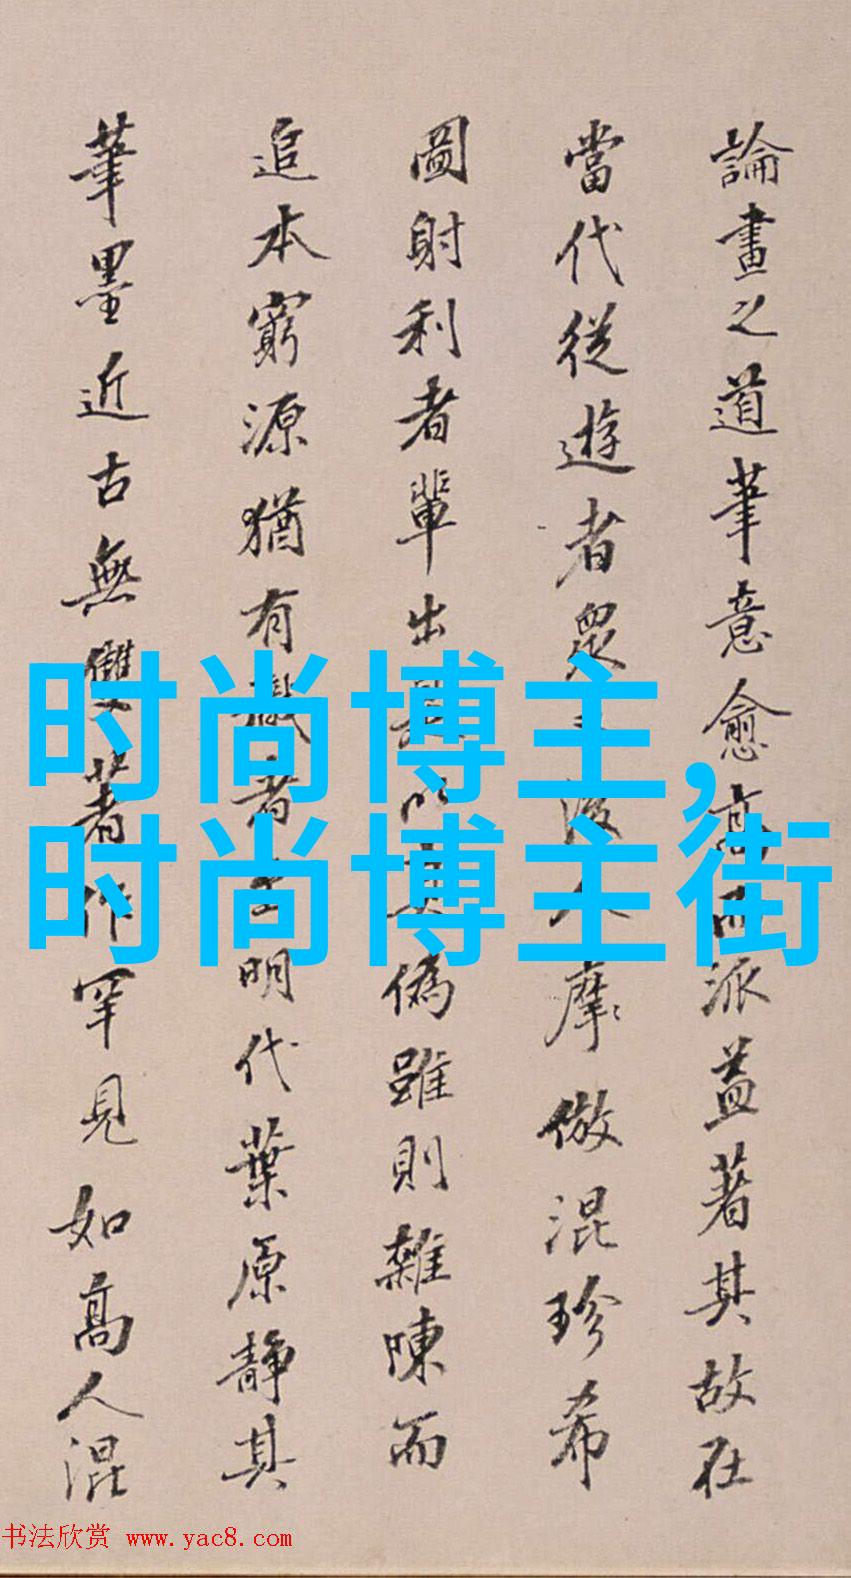 論畫之道筆意愈高派益著其故在
當代從遊者眾人摩倣混珍希
圖射利者輩出以偽雖則雜陳而
追本窮源猶有識者明代葉原靜其
筆墨近古無雙著作罕見如高人混
时尚博主,
时尚博主街
书法欣赏 www.yac8.com